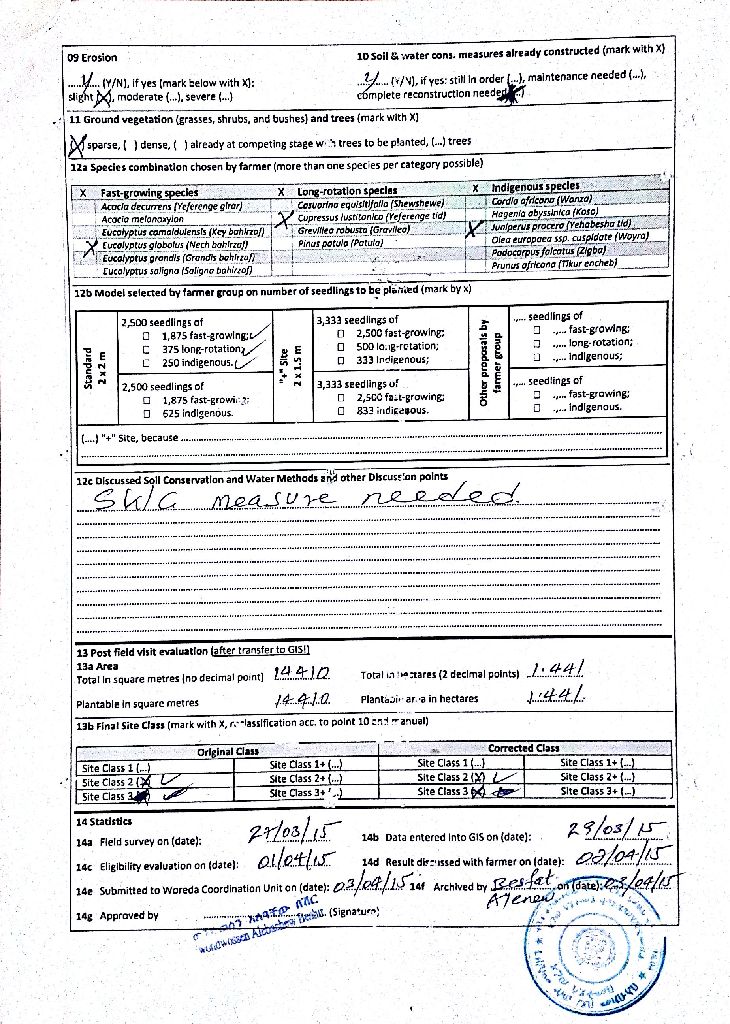 09 Erosion
10 Soil & water cons. measures already constructed (mark with X)
....Y.... (Y/N), if yes (mark below with X):
slight (X), moderate (...), severe (...)
....Y.... (Y/N), if yes: still in order (...), maintenance needed (...),
complete reconstruction needed (...)
11 Ground vegetation (grasses, shrubs, and bushes) and trees (mark with X)
(X) sparse, ( ) dense, ( ) already at competing stage with trees to be planted, (...) trees
12a Species combination chosen by farmer (more than one species per category possible)
X Fast-growing species X Long-rotation species X Indigenous species
Acacia decurrens (Yeferenge girar) Casuarina equisitifolia (Shewshewe) Cordia africana (Wanza)
Acacia melanoxylon X Cupressus lustitanica (Yeferenge tid) Hagenia abyssinica (Koso)
Eucalyptus camaldulensis (Key bahirzaf) Grevillea robusta (Gravilea) X Juniperus procera (Yehabesha tid)
X Eucalyptus globulus (Nech bahirzaf) Pinus patula (Patula) Olea europaea ssp. cuspidate (Wayra)
Eucalyptus grandis (Grandis bahirzaf) Podocarpus falcatus (Zigba)
Eucalyptus saligna (Saligna bahirzaf) Prunus africana (Tikur encheb)
12b Model selected by farmer group on number of seedlings to be planted (mark by x)
Standard
2 x 2 m
2,500 seedlings of
☐ 1,875 fast-growing; ✓
☐ 375 long-rotation; ✓
☐ 250 indigenous. ✓
2,500 seedlings of
☐ 1,875 fast-growing;
☐ 625 indigenous.
"+" Site
2 x 1.5 m
3,333 seedlings of
☐ 2,500 fast-growing;
☐ 500 long-rotation;
☐ 333 indigenous;
3,333 seedlings of
☐ 2,500 fast-growing;
☐ 833 indigenous.
Other proposals by
farmer group
..... seedlings of
☐ ..... fast-growing;
☐ ..... long-rotation;
☐ ..... indigenous;
..... seedlings of
☐ ..... fast-growing;
☐ ..... indigenous.
(....) "+" Site, because
12c Discussed Soil Conservation and Water Methods and other Discussion points
SW/C measure needed.
13 Post field visit evaluation (after transfer to GIS!)
13a Area
Total in square metres (no decimal point) 14410 Total in hectares (2 decimal points) 1.441
Plantable in square metres 14410 Plantable area in hectares 1.441
13b Final Site Class (mark with X, reclassification acc. to point 10 and manual)
Original Class Corrected Class
Site Class 1 (...) Site Class 1+ (...) Site Class 1 (...) Site Class 1+ (...)
Site Class 2 (X) ✓ Site Class 2+ (...) Site Class 2 (X) ✓ Site Class 2+ (...)
Site Class 3 Site Class 3+ (...) Site Class 3 (X) Site Class 3+ (...)
14 Statistics
14a Field survey on (date): 27/03/15 14b Data entered into GIS on (date): 29/03/15
14c Eligibility evaluation on (date): 01/04/15 14d Result discussed with farmer on (date): 02/04/15
14e Submitted to Woreda Coordination Unit on (date): 03/04/15 14f Archived by Besfat Atenew on (date): 03/04/15
14g Approved by (Signature)